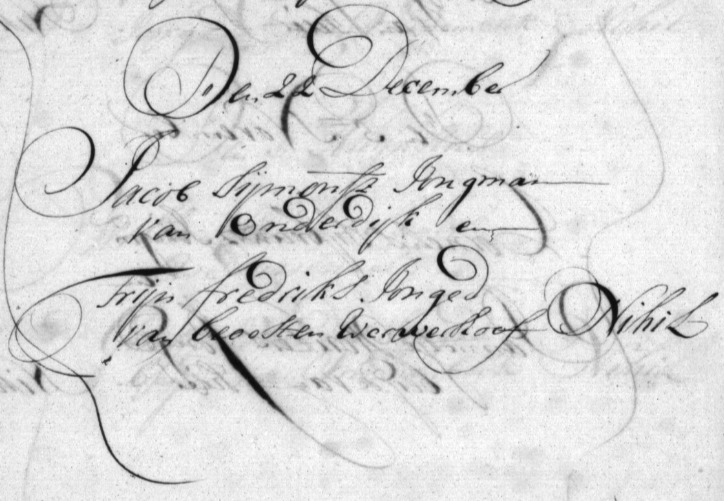 Den 22 December
Jacob Sijmonsz Jongman
van Onderdijk en
Trijn fredriks. Jonged
van beoosten Wervershoof Nihil